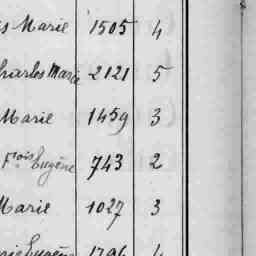 Marie 1505 4
Charles Marie 2121 5
Marie 1459 3
Frois Eugène 743 2
Marie 1027 3
Eugène 1796 4